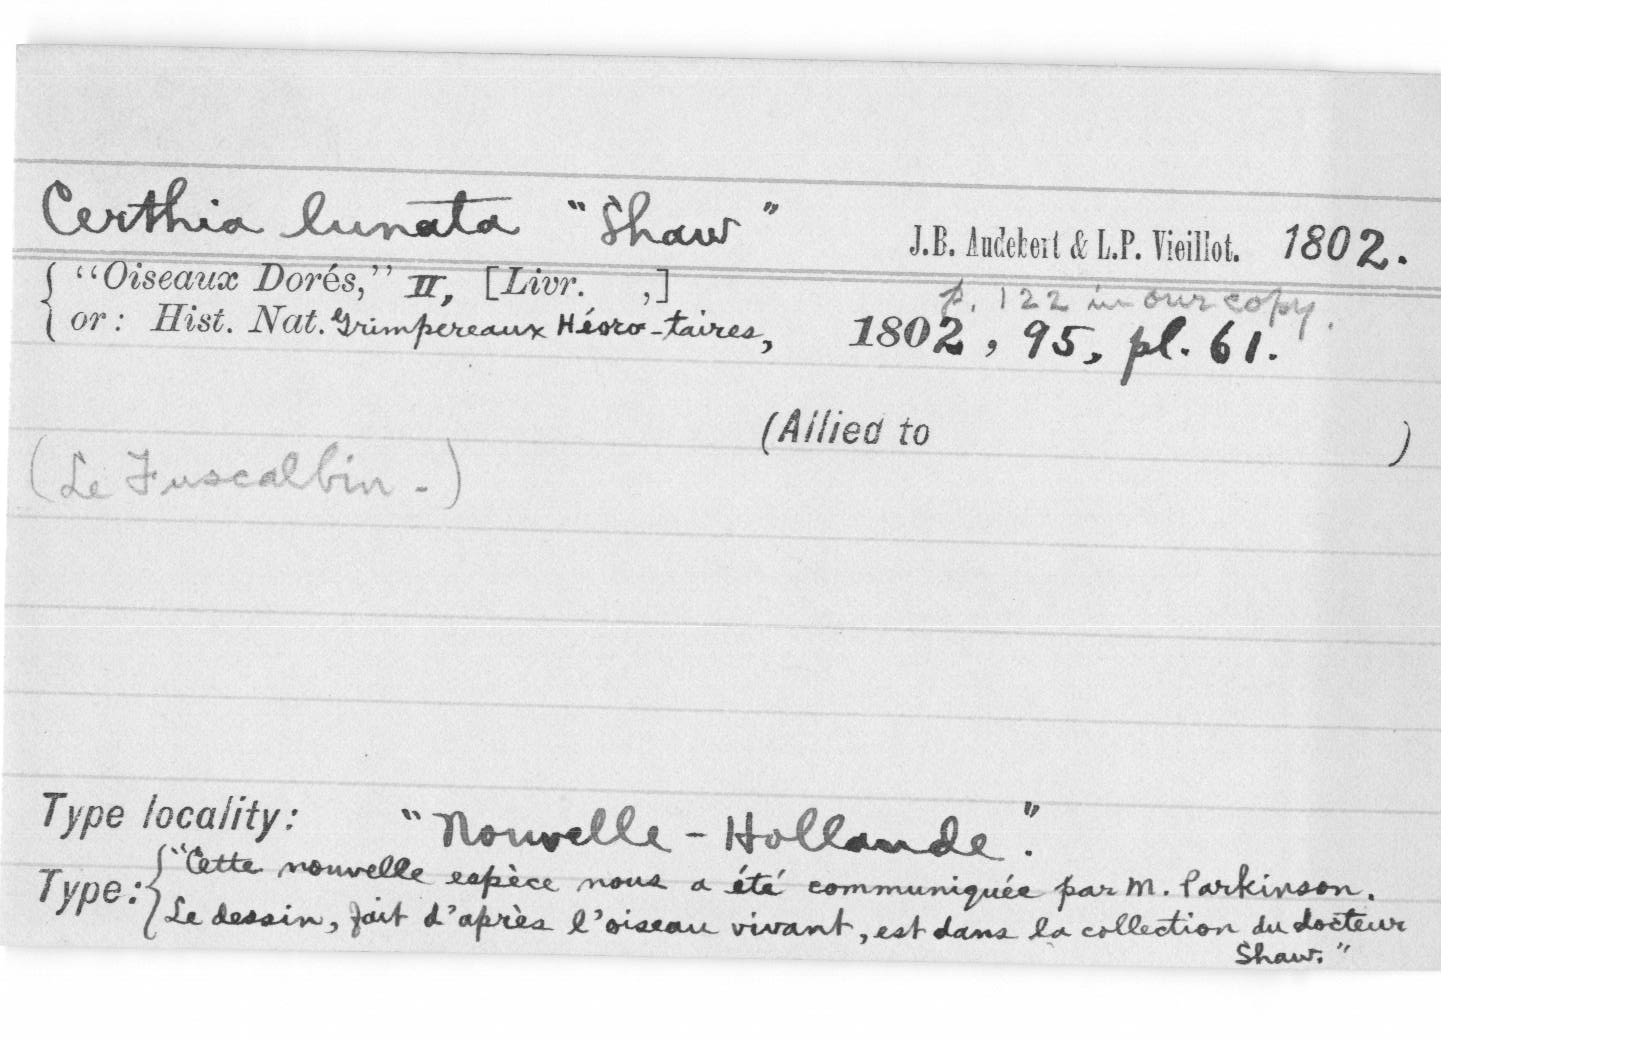 Certhia lunata "Shaw" J.B. Audebert & L.P. Vieillot. 1802.
"Oiseaux Dorés," II, [Livr. ,]
p. 122 in our copy.
or: Hist. Nat. Grimpereaux Héoro-taires, 1802, 95, pl. 61.
(Allied to )
(Le Fuscalbin-)
Type locality: "Nouvelle-Hollande".
Type: "Cette nouvelle espèce nous a été communiquée par M. Parkinson.
Le dessin, fait d'après l'oiseau vivant, est dans la collection du docteur
Shaw."